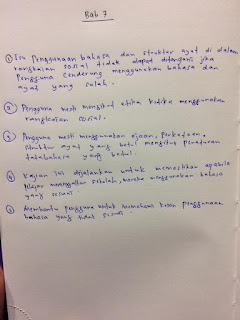 Bab 7
① Isu Penggunaan bahasa dan struktur ayat di dalam
rangkaian sosial tidak dapat ditangani jika
Pengguna Cenderung menggunakan bahasa dan
ayat yang salah.
② Pengguna mesti mengikut etika ketika menggunakan
rangkaian sosial.
③ Pengguna mesti menggunakan ejaan, perkataan,
struktur ayat yang betul mengikut peraturan
tatabahasa yang betul.
④ Kajian ini dijalankan untuk memastikan apabila
pelajar meninggalkan sekolah, mereka menggunakan bahasa
yang sesuai
⑤ Membantu pengguna untuk memahami kesan penggunaan
bahasa yang tidak sesuai.